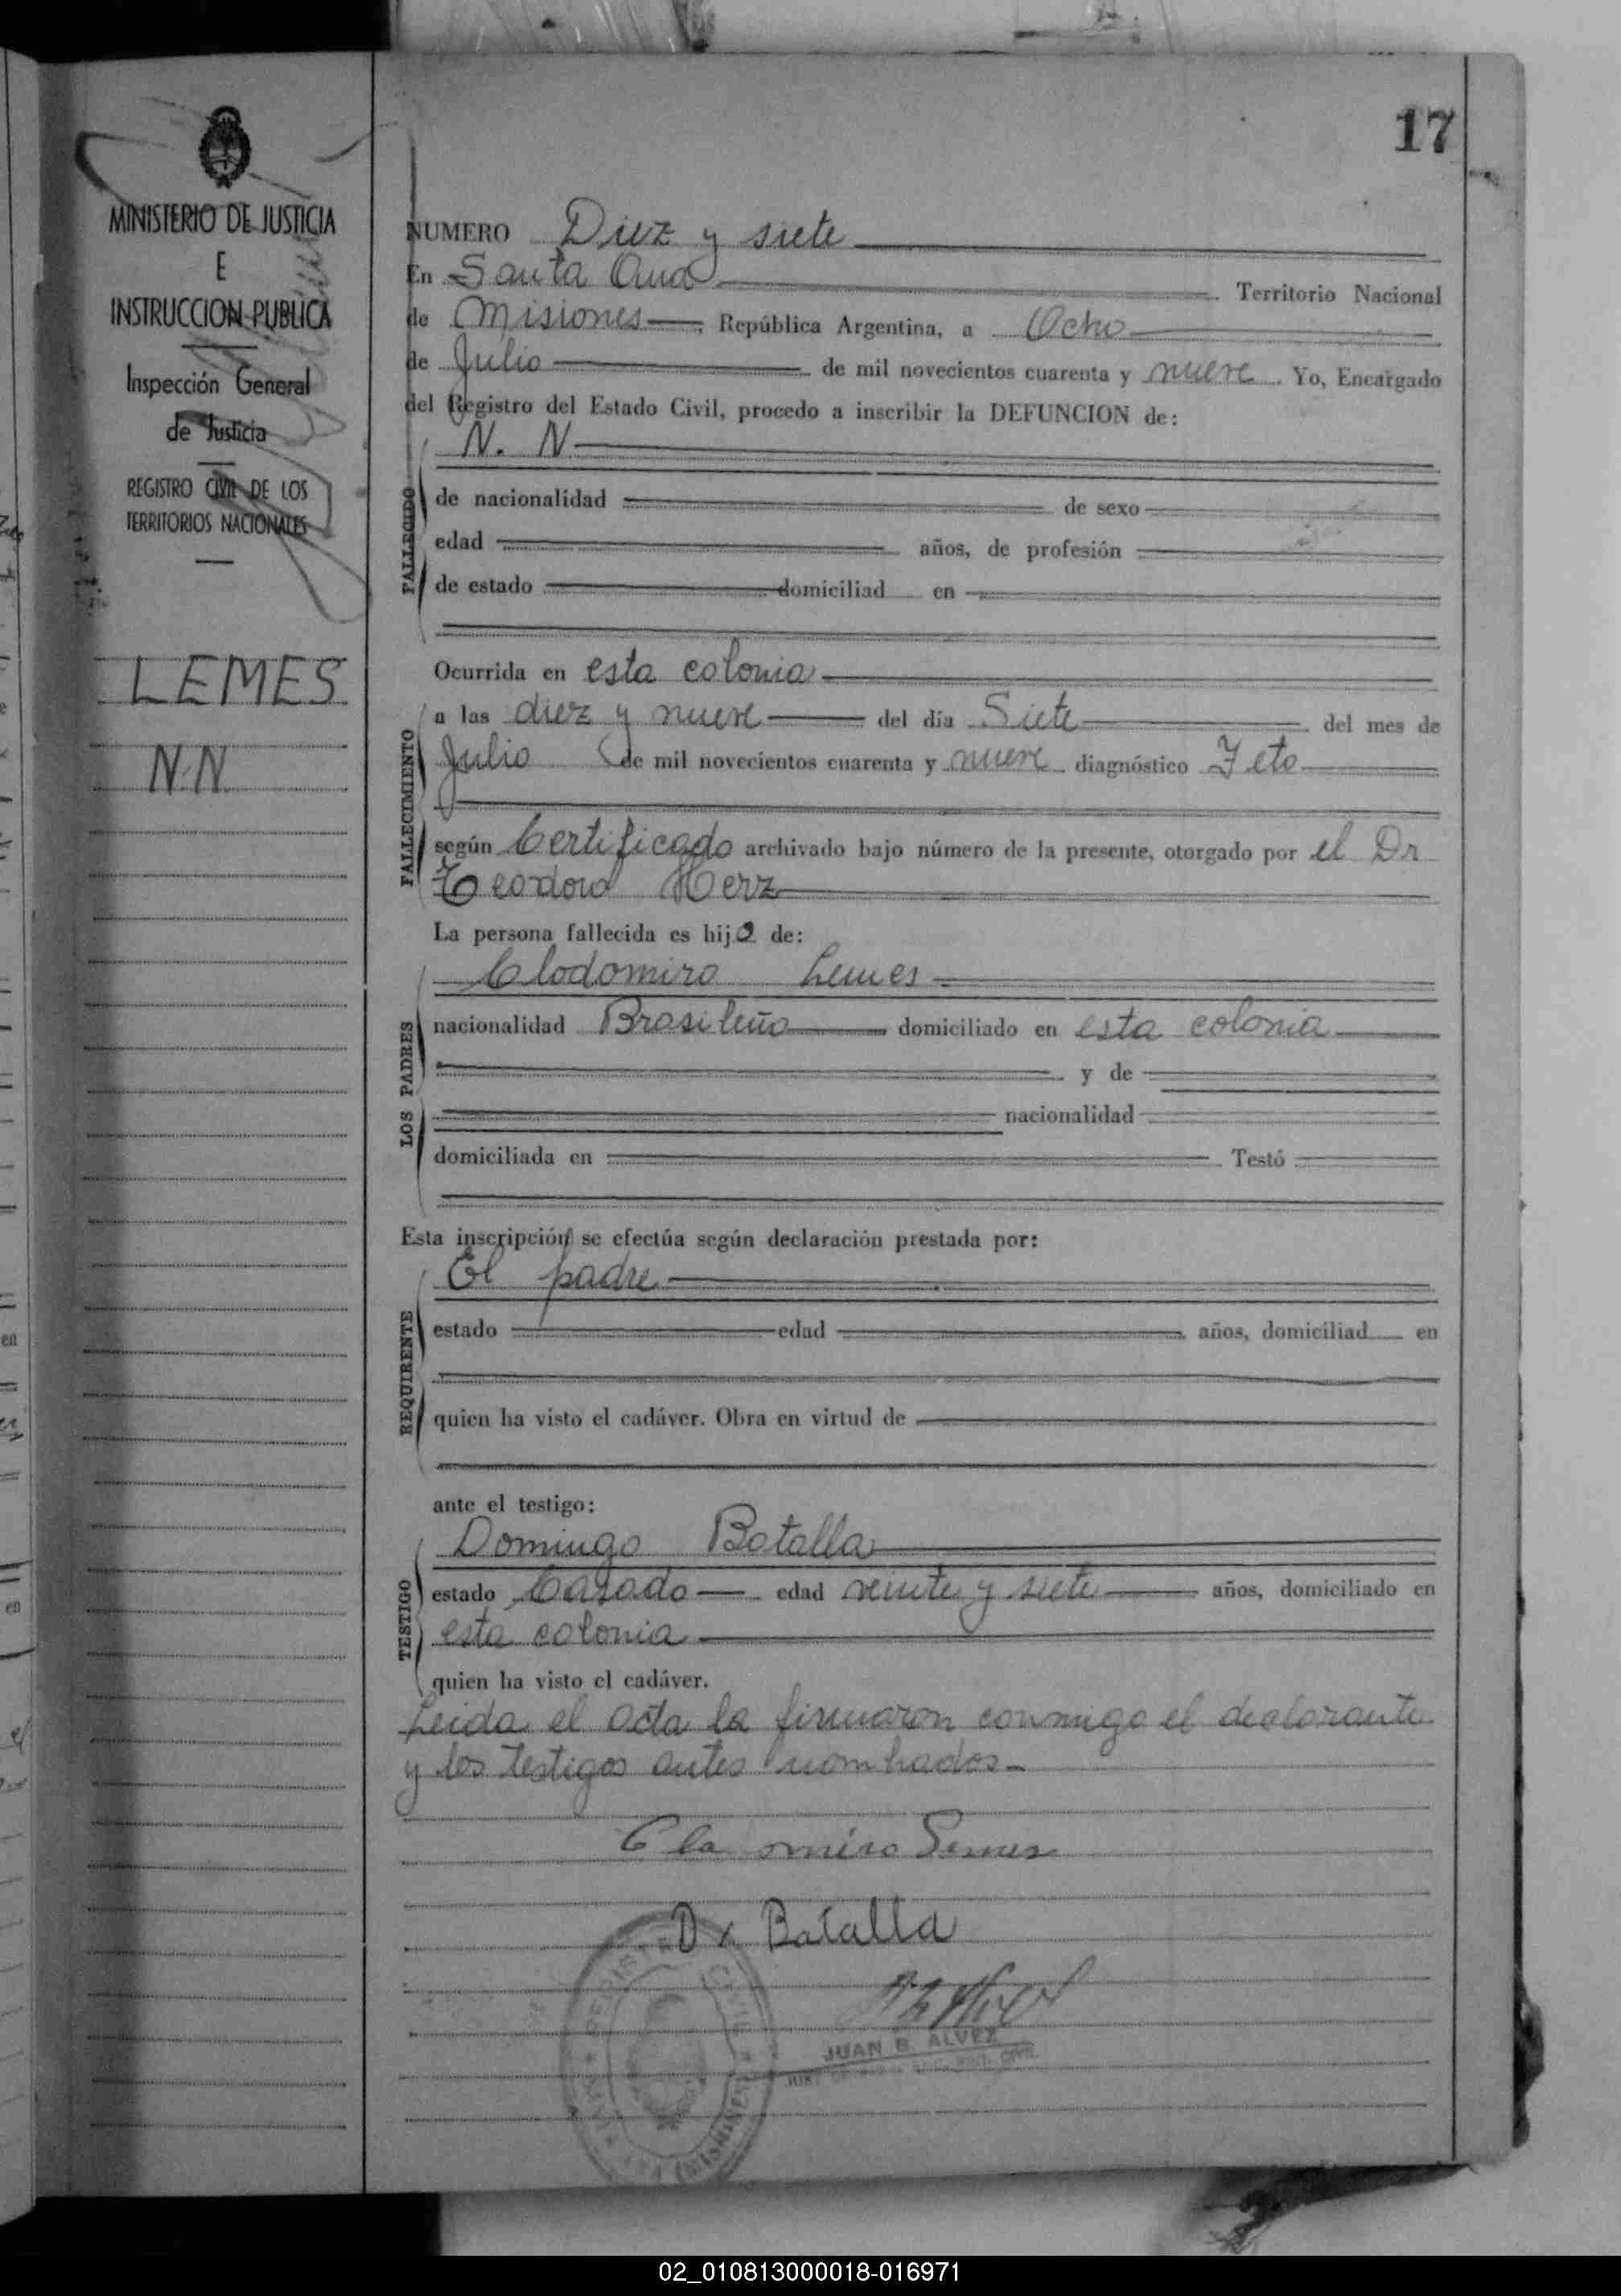 17
MINISTERIO DE JUSTICIA
E
INSTRUCCION PUBLICA
Inspección General
de Justicia
REGISTRO CIVIL DE LOS
TERRITORIOS NACIONALES
LEMES
N.N.
NUMERO Diez y siete
En Santa Ana Territorio Nacional
de Misiones, República Argentina, a Ocho
de Julio de mil novecientos cuarenta y nueve. Yo, Encargado
del Registro del Estado Civil, procedo a inscribir la DEFUNCION de:
N. N
FALLECIDO
de nacionalidad de sexo
edad años, de profesión
de estado domiciliad en
Ocurrida en esta colonia
a las diez y nueve del día Siete del mes de
FALLECIMIENTO
Julio de mil novecientos cuarenta y nueve diagnóstico Feto
según Certificado archivado bajo número de la presente, otorgado por el Dr
Teodoro Herz
La persona fallecida es hijo de:
Clodomiro Lemes
LOS PADRES
nacionalidad Brasileño domiciliado en esta colonia
y de
nacionalidad
domiciliada en Testó
Esta inscripción se efectúa según declaración prestada por:
El padre
REQUIRENTE
estado edad años, domiciliad en
quien ha visto el cadáver. Obra en virtud de
ante el testigo:
Domingo Batalla
TESTIGO
estado Casado edad veinte y siete años, domiciliado en
esta colonia
quien ha visto el cadáver.
Leida el acta la firmaron conmigo el declarante
y los testigos antes nombrados.-
Clo omiro Lemes
D. Batalla
JUAN B. ALVEZ
02_010813000018-016971